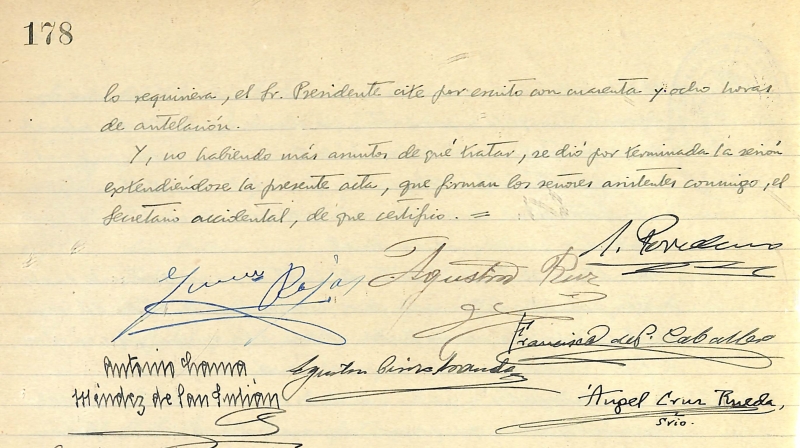 178
lo requiriera, el Sr. Presidente cite por escrito con cuarenta y ocho horas
de antelación.
Y, no habiendo más asuntos de qué tratar, se dió por terminada la sesión
extendiéndose la presente acta, que forman los señores asistentes conmigo, el
Secretario accidental, de que certifico. =
Rojas
Agustín Ruiz
Francisco de P. Caballero
Antonio Lama
Méndez de San Julián
Agustín
Ángel Cruz Rueda,
Srio.